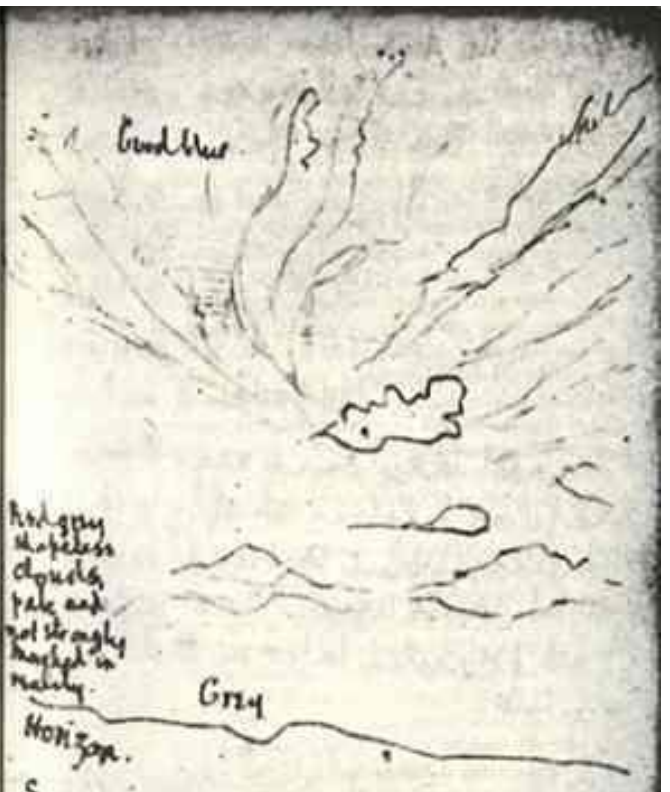 Good blue
Red grey
shapeless
clouds,
pale and
not strongly
marked in
reality.
Grey
Horizon.